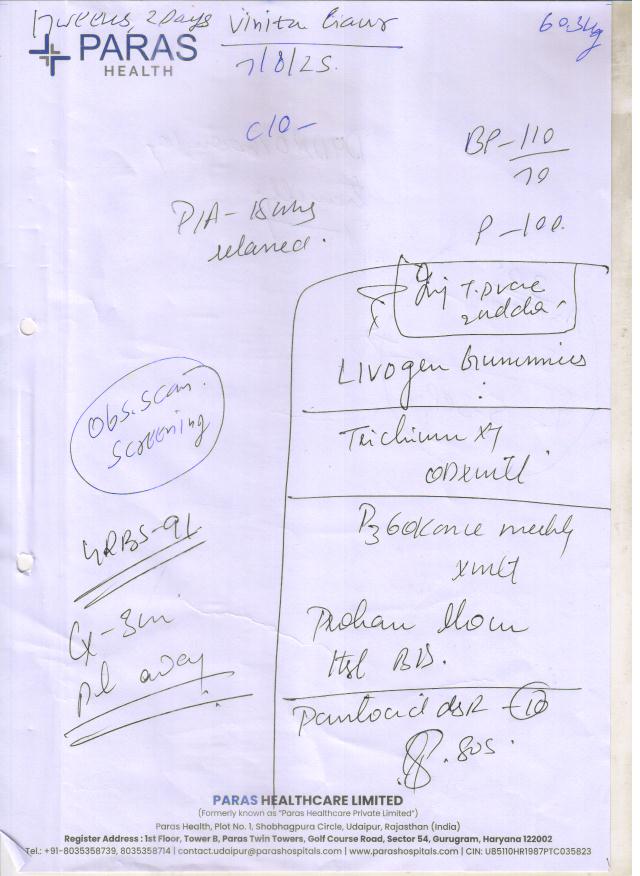 17 weeks, 2 Days
Vinita Gaur
60.3kg
PARAS
HEALTH
7/8/25.
C/O -
BP - 110
70
P/A - 18 wks
relaxed.
P - 100.
Inj
Livogen Gummies
Obs. Scan.
Screening
OD x
GRBS - 91
P3 60K once weekly
Cx - 3cm
Pl away
Tsf BD.
Pantocid dsR - 10
SOS.
PARAS HEALTHCARE LIMITED
(Formerly known as "Paras Healthcare Private Limited")
Paras Health, Plot No. 1, Shobhagpura Circle, Udaipur, Rajasthan (India)
Register Address : 1st Floor, Tower B, Paras Twin Towers, Golf Course Road, Sector 54, Gurugram, Haryana 122002
Tel.: +91-8035358739, 8035358714 | contact.udaipur@parashospitals.com | parashospitals.com | CIN: U85110HR1987PTC035823